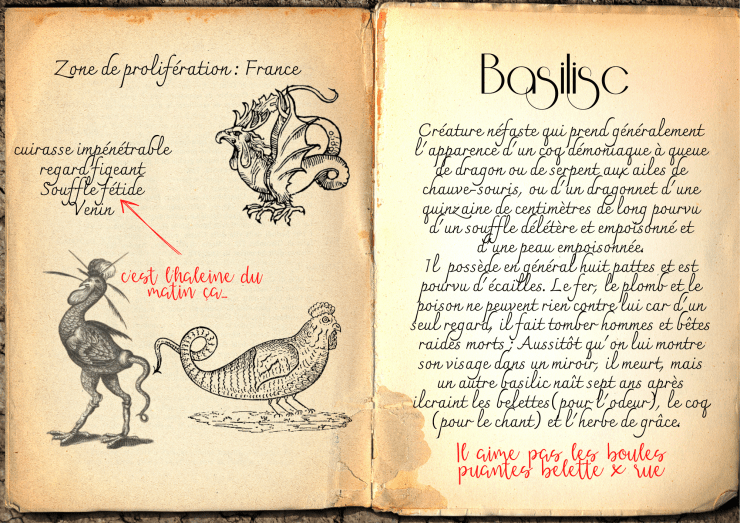 Zone de prolifération : France
cuirasse impénétrable
regard figeant
Souffle fétide
Venin
c'est l'haleine du
matin ça...
Basilisc
Créature néfaste qui prend généralement
l'apparence d'un coq démoniaque à queue
de dragon ou de serpent aux ailes de
chauve-souris, ou d'un dragonnet d'une
quinzaine de centimètres de long pourvu
d'un souffle délétère et empoisonné et
d'une peau empoisonnée.
Il possède en général huit pattes et est
pourvu d'écailles. Le fer, le plomb et le
poison ne peuvent rien contre lui car d'un
seul regard, il fait tomber hommes et bêtes
raides morts ; Aussitôt qu'on lui montre
son visage dans un miroir, il meurt, mais
un autre basilic naît sept ans après
ilcraint les belettes(pour l'odeur), le coq
(pour le chant) et l'herbe de grâce.
Il aime pas les boules
puantes belette x rue